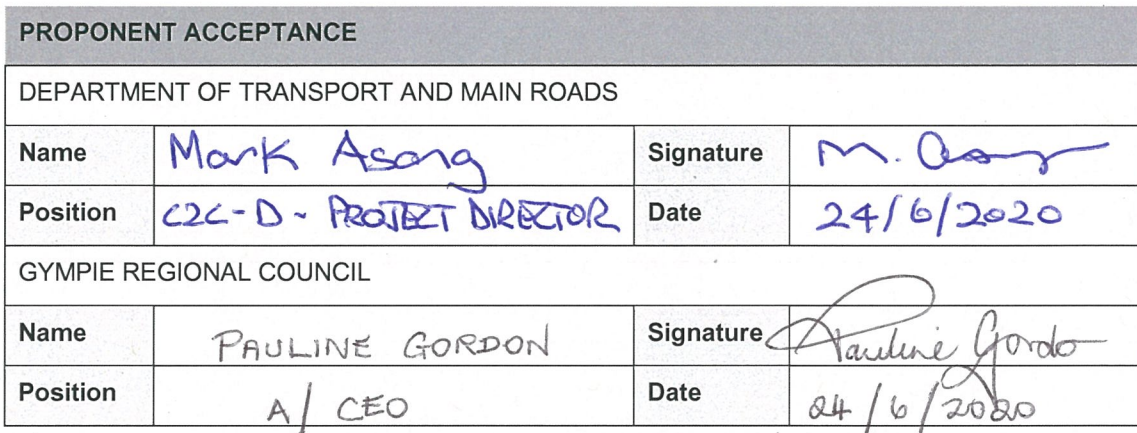 PROPONENT ACCEPTANCE
DEPARTMENT OF TRANSPORT AND MAIN ROADS
Name Mark Asang Signature M. Asang
Position C2C-D - PROJECT DIRECTOR Date 24/6/2020
GYMPIE REGIONAL COUNCIL
Name PAULINE GORDON Signature Pauline Gordon
Position A/ CEO Date 24/6/2020